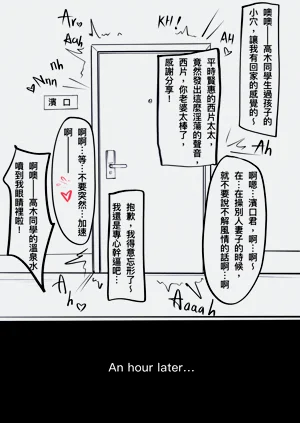 噢噢——高木同學生過孩子的
小穴，讓我有回家的感覺的～
AH
KH!
Ar
Aah
平時賢惠的西片太太，
竟然發出這麼淫蕩的聲音，
西片，你老婆太棒了，
感謝分享！
nh
Nnn
濱口
Ah
啊嗯…濱口君，啊…啊～
在…在操別人妻子的時候，
就不要說不解風情的話啊…啊
啊啊…等…不要突然…加速
啊——
抱歉，我得意忘形了～
我還是專心幹逼吧…
啊噢——高木同學的溫泉水
噴到我眼睛裡啦！
Ah
Aaaah
An hour later...